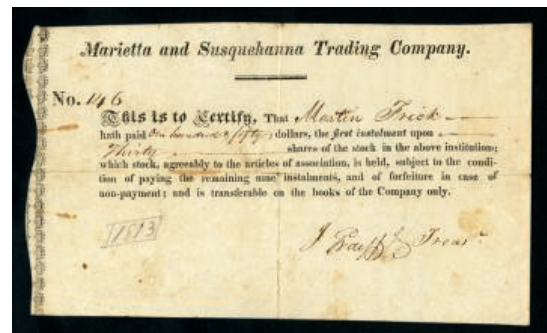 Marietta and Susquehanna Trading Company.
No. 146
This is to Certify, That Martin Frick
hath paid One hundred & fifty dollars, the first instalment upon
Thirty shares of the stock in the above institution;
which stock, agreeably to the articles of association, is held, subject to the condi-
tion of paying the remaining nine instalments, and of forfeiture in case of
non-payment; and is transferable on the books of the Company only.
1813
J Graeff Treasr